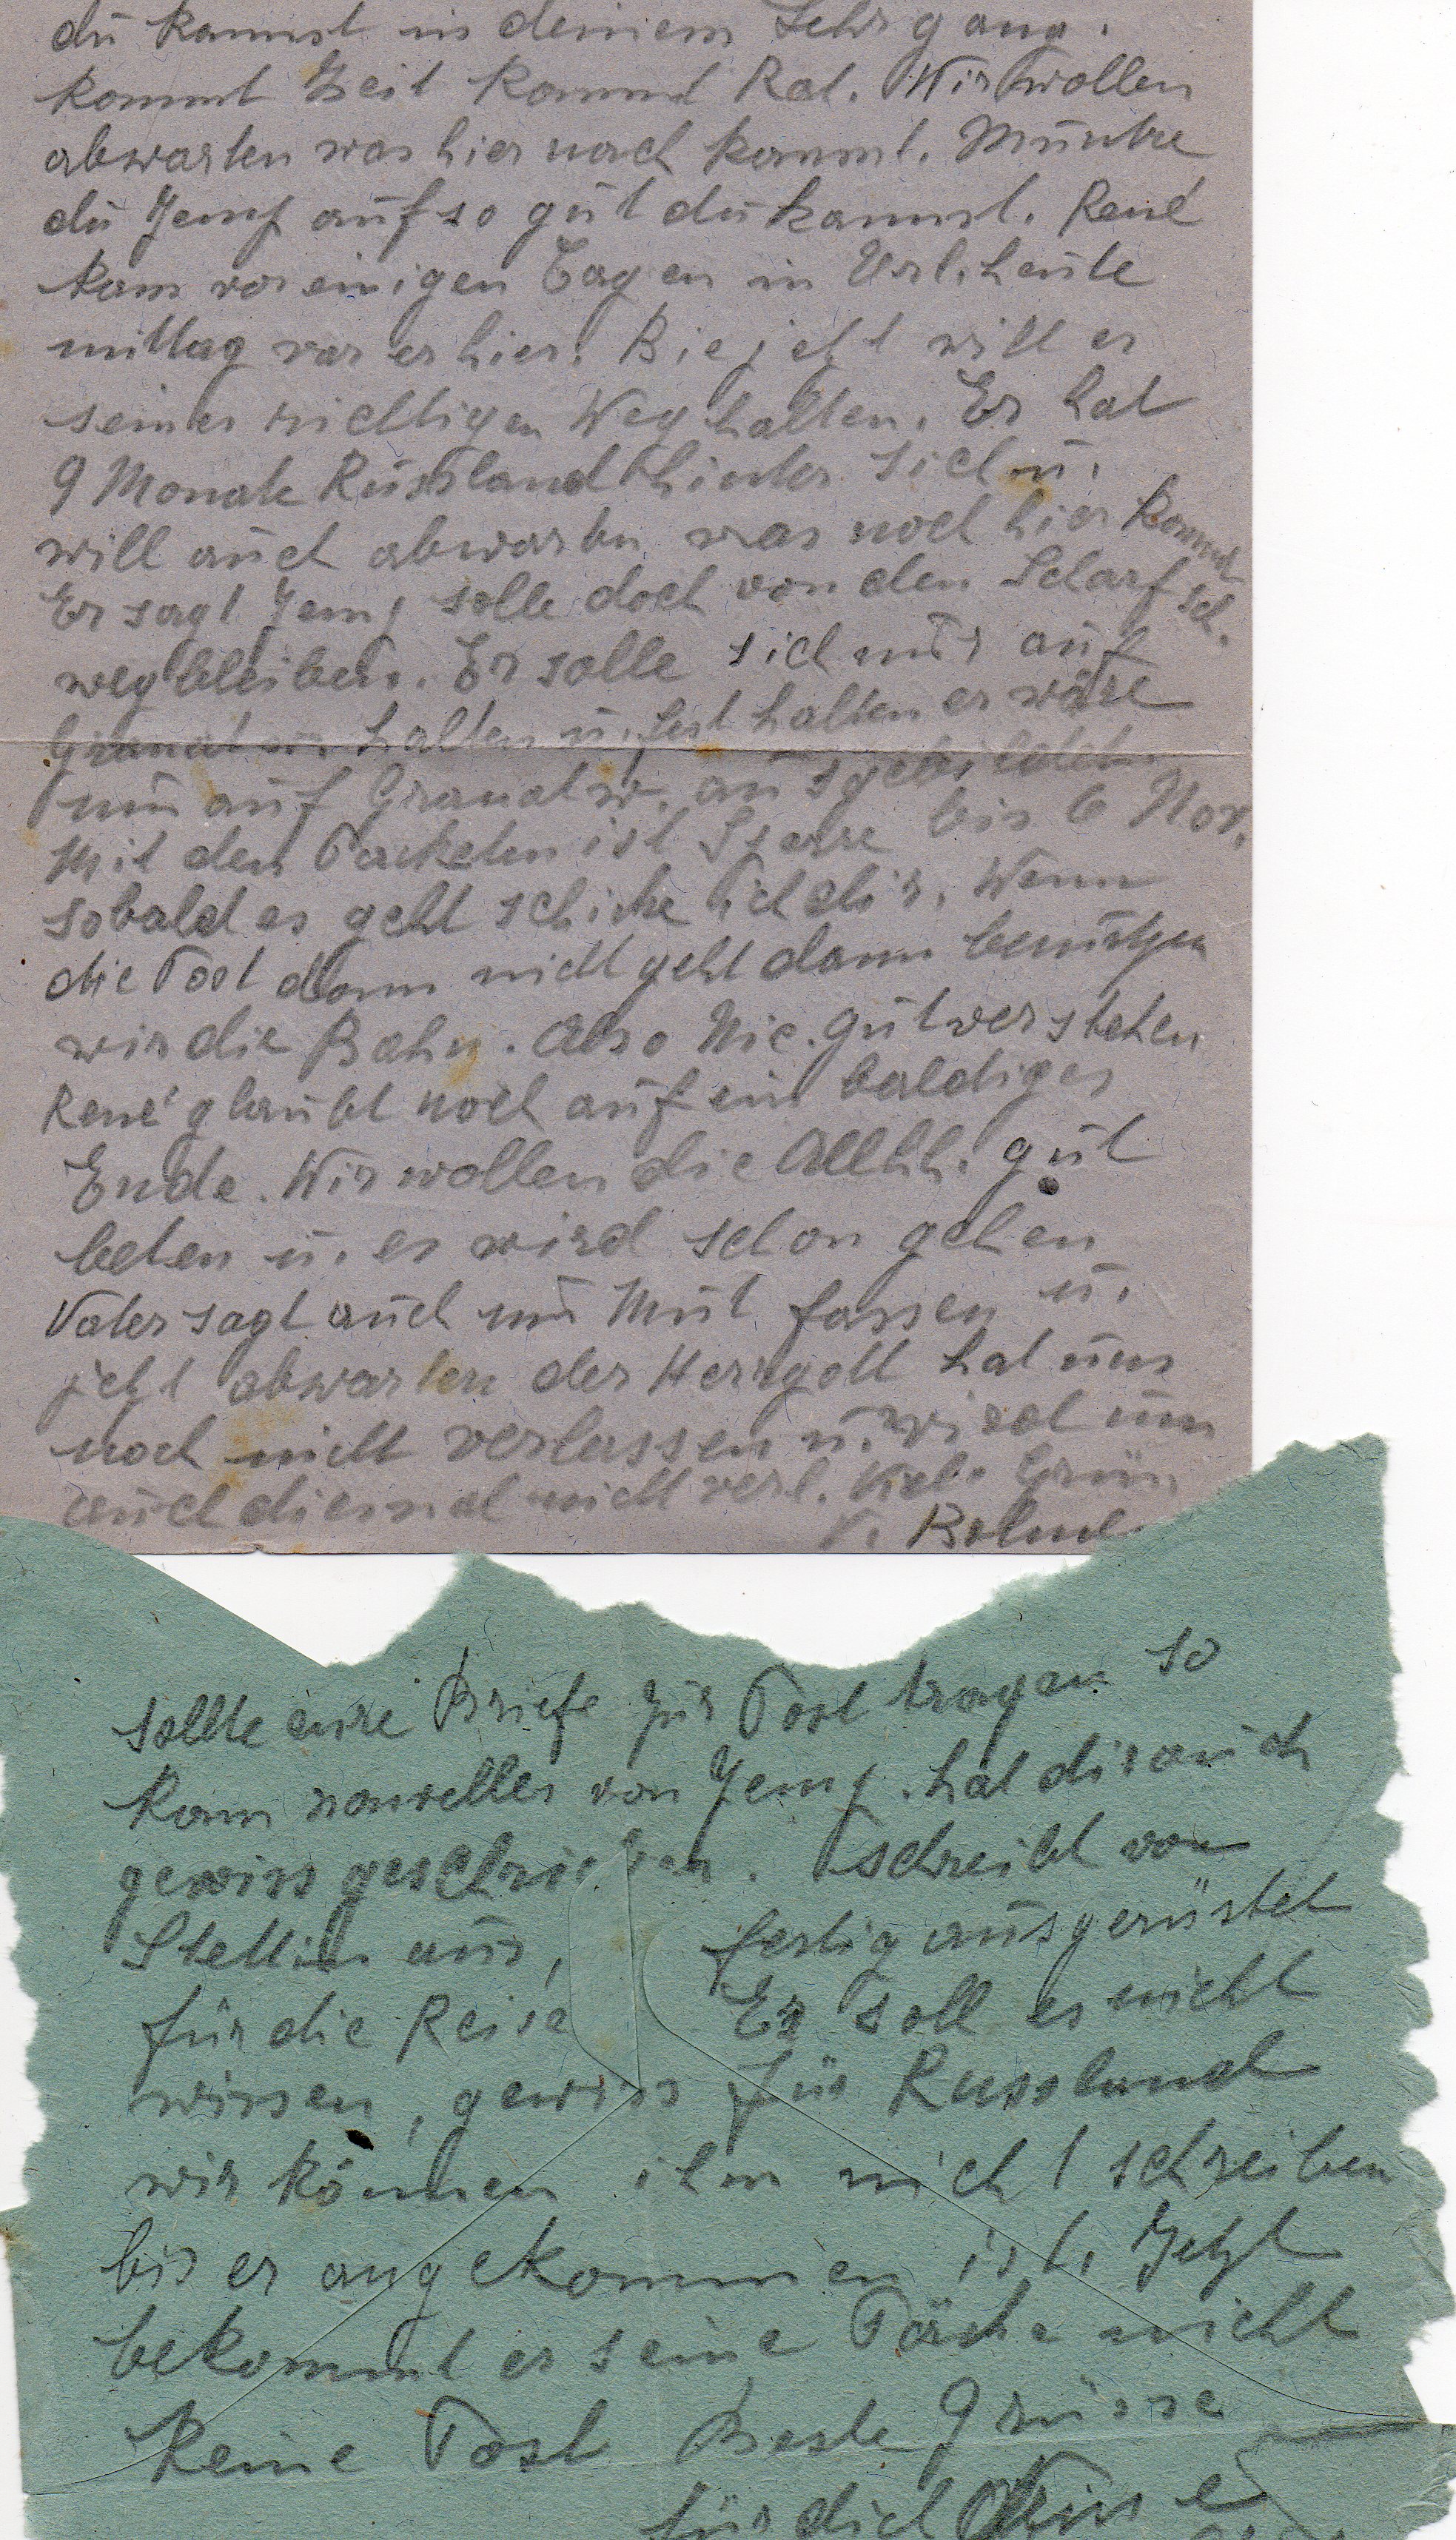 du kannst in deinem Lehrgang.
kommt Zeit kommt Rat. Wir wollen
abwarten was hier noch kommt. Muntre
du Jemp auf so gut du kannst. René
kam vor einigen Tagen in Url. heute
mittag war er hier. Bis jetzt will er
seinen richtigen Weg halten. Er hat
9 Monate Russland hinter sich u.
will auch abwarten was noch hier kommt
Er sagt Jemp solle doch von den Scharfsch.
wegbleiben. Er solle sich nur auf
Granatw. halten u. fest halten er wäre
nur auf Granatw. ausgebildet.
Mit den Paketen ist Sperre bis 6 Nov.
sobald es geht schicke ich dir. Wenn
die Post dann nicht geht dann benutzen
wir die Bahn. Also Nic. gut verstehen
René glaubt noch auf ein baldiges
Ende. Wir wollen die Allhh. gut
beten u. es wird schon gehen
Vater sagt auch nur Mut fassen u.
jetzt abwarten der Herrgott hat uns
noch nicht verlassen u. wird uns
auch diesmal nicht verl. Viele Grüsse
V.
sollte eure Briefe zur Post tragen so
kam nouvelles von Jemp. hat dir auch
gewiss geschrieben. schreibt von
Stettin aus, fertig ausgerüstet
für die Reise Er soll es nicht
wissen, gewiss für Russland
wir können ihm nicht schreiben
bis er angekommen ist. Jetzt
bekommt er seine Päcke nicht
Keine Post Beste Grüsse
für dich